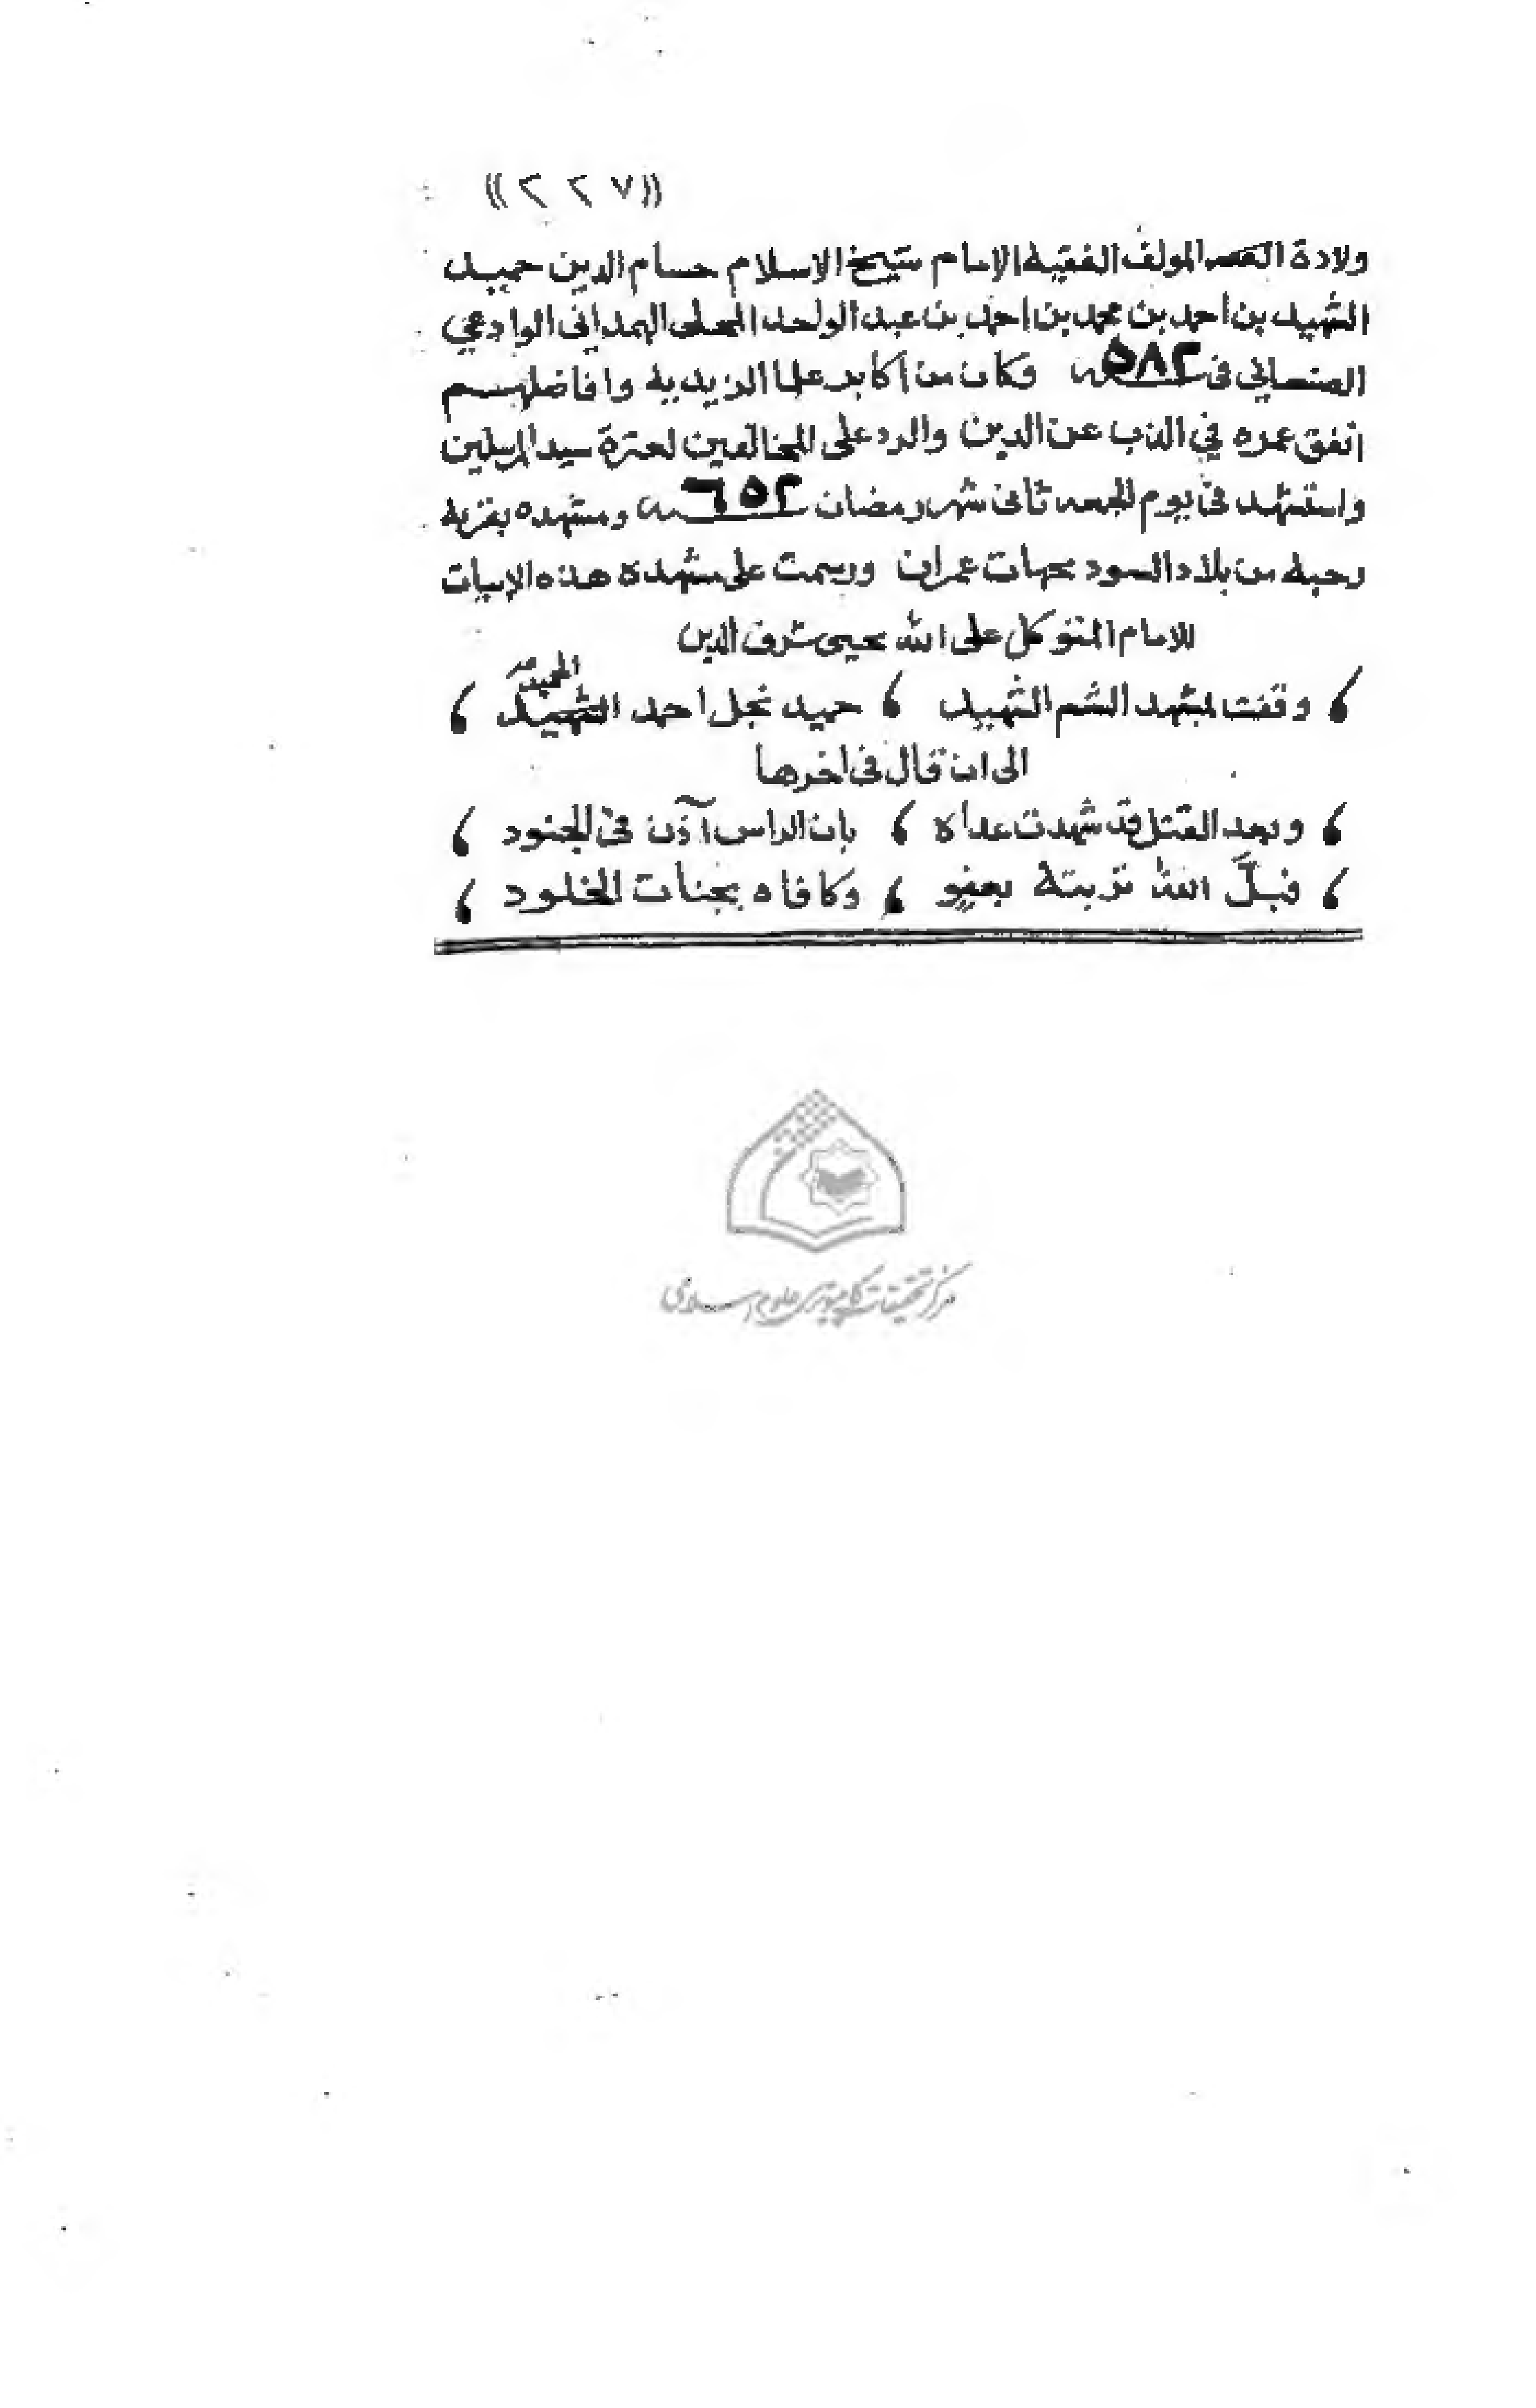 ((٢٢٧))
ولادة المؤلف الفقيه الامام شيخ الاسلام حسام الدين حميد
الشهيد بن احمد بن محمد بن احمد بن عبد الواحد المحلى الهمدانى الوادعي
الصنعاني فى ٥٨٢ سنه وكان من أكابر علما الزيديه وافاضلهم
انفق عمره في الذب عن الدين والرد على المخالفين لعترة سيد المرسلين
واستشهد فى يوم الجمعه ثانى شهر رمضان ٦٥٢ سنه ومشهده بقريه
رحبه من بلاد السود بجهات عمران ورسمت على مشهده هذه الابيات
للامام المتوكل على الله يحيى شرف الدين
، وقفت بمشهد الشهيد ، حميد نجل احمد الشهيد المجيد ،
الى ان قال فى اخرها
، وبعد القتل قد شهدت عداه ، بان الراس آذن فى الجنود ،
، فبلَّ اللهُ تربته بعفوٍ ، وكافاه بجنات الخلود ،
مركز تحقيقات كامپيوترى علوم اسلامى